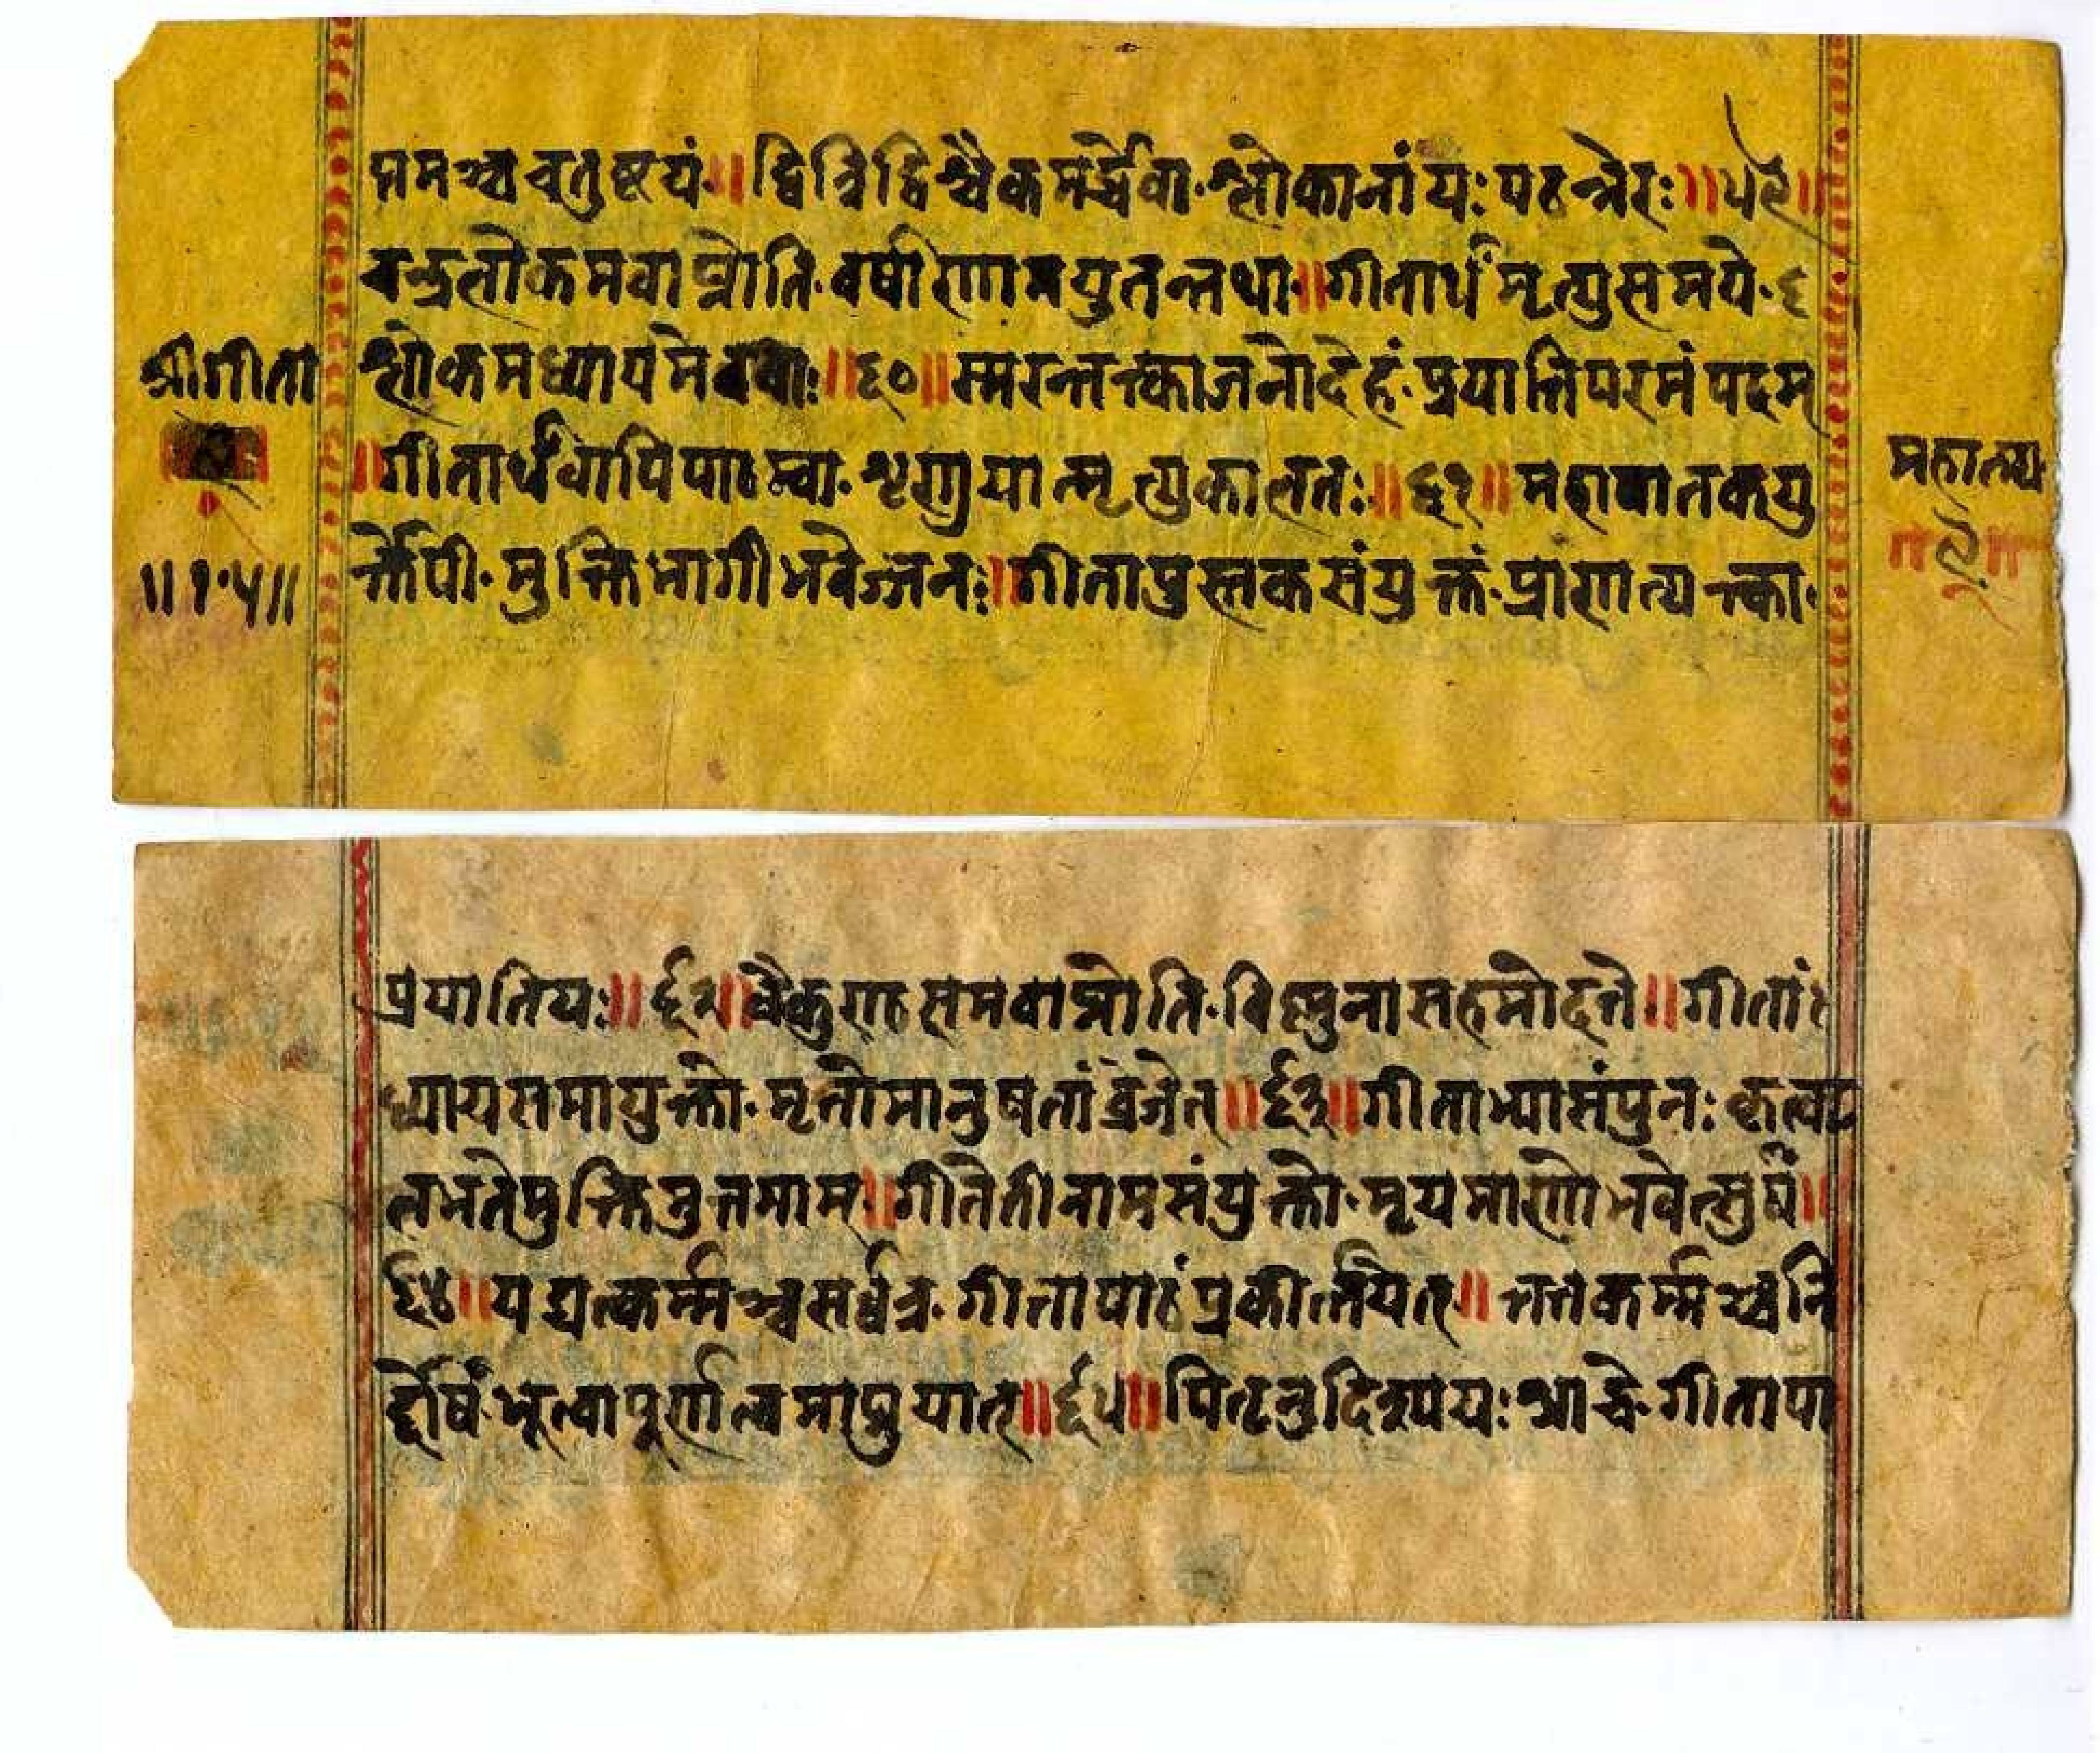 प्तमञ्च चतुष्टयं ॥ द्वित्रिद्विश्चैकमर्धेवा श्लोकानांयः पठन्नेरः ॥ ५९ ॥
चन्द्रलोकमवाप्नोति वर्षाणामयुतन्तथा ॥ गीतार्थं मृत्युसमये
श्रीगीता
श्लोकमध्यायमेववाः ॥ ६० ॥ स्मरन्तत्क्काजनोदेहं प्रयातिपरमं पदम्
॥ गीतार्थंवापिपाठम्वा शृणुयान्मृत्युकालतः ॥ ६१ ॥ महापातकयु
महात्म्य
॥ १५ ॥
र्क्तोपी मुक्तिभागीभवेज्जनः ॥ गीतापुस्तकसंयुक्तं प्राणात्यत्क्का
प्रयातियः ॥ ६२ ॥ वैकुण्ठसमवाप्नोति विष्णुनासहमोदते ॥ गीतां
ध्यायसमायुक्तो मृतोमानुषतां व्रजेत् ॥ ६३ ॥ गीताभ्यासंपुनः कृत्वा
लभतेमुक्तिमुत्तमाम् ॥ गीतेतीनामसंयुक्तो मृयमाणोभवेत्सुधीं ॥
६४ ॥ यद्यत्कर्म्मञ्चसर्व्वत्र गीतापाठंप्रकीर्त्तयेत् ॥ तत्तकर्म्मञ्चनि
र्द्दोषं भूत्वापूर्णात्वमाप्नुयात् ॥ ६५ ॥ पितृनुदिश्ययः श्राद्धे गीतापा